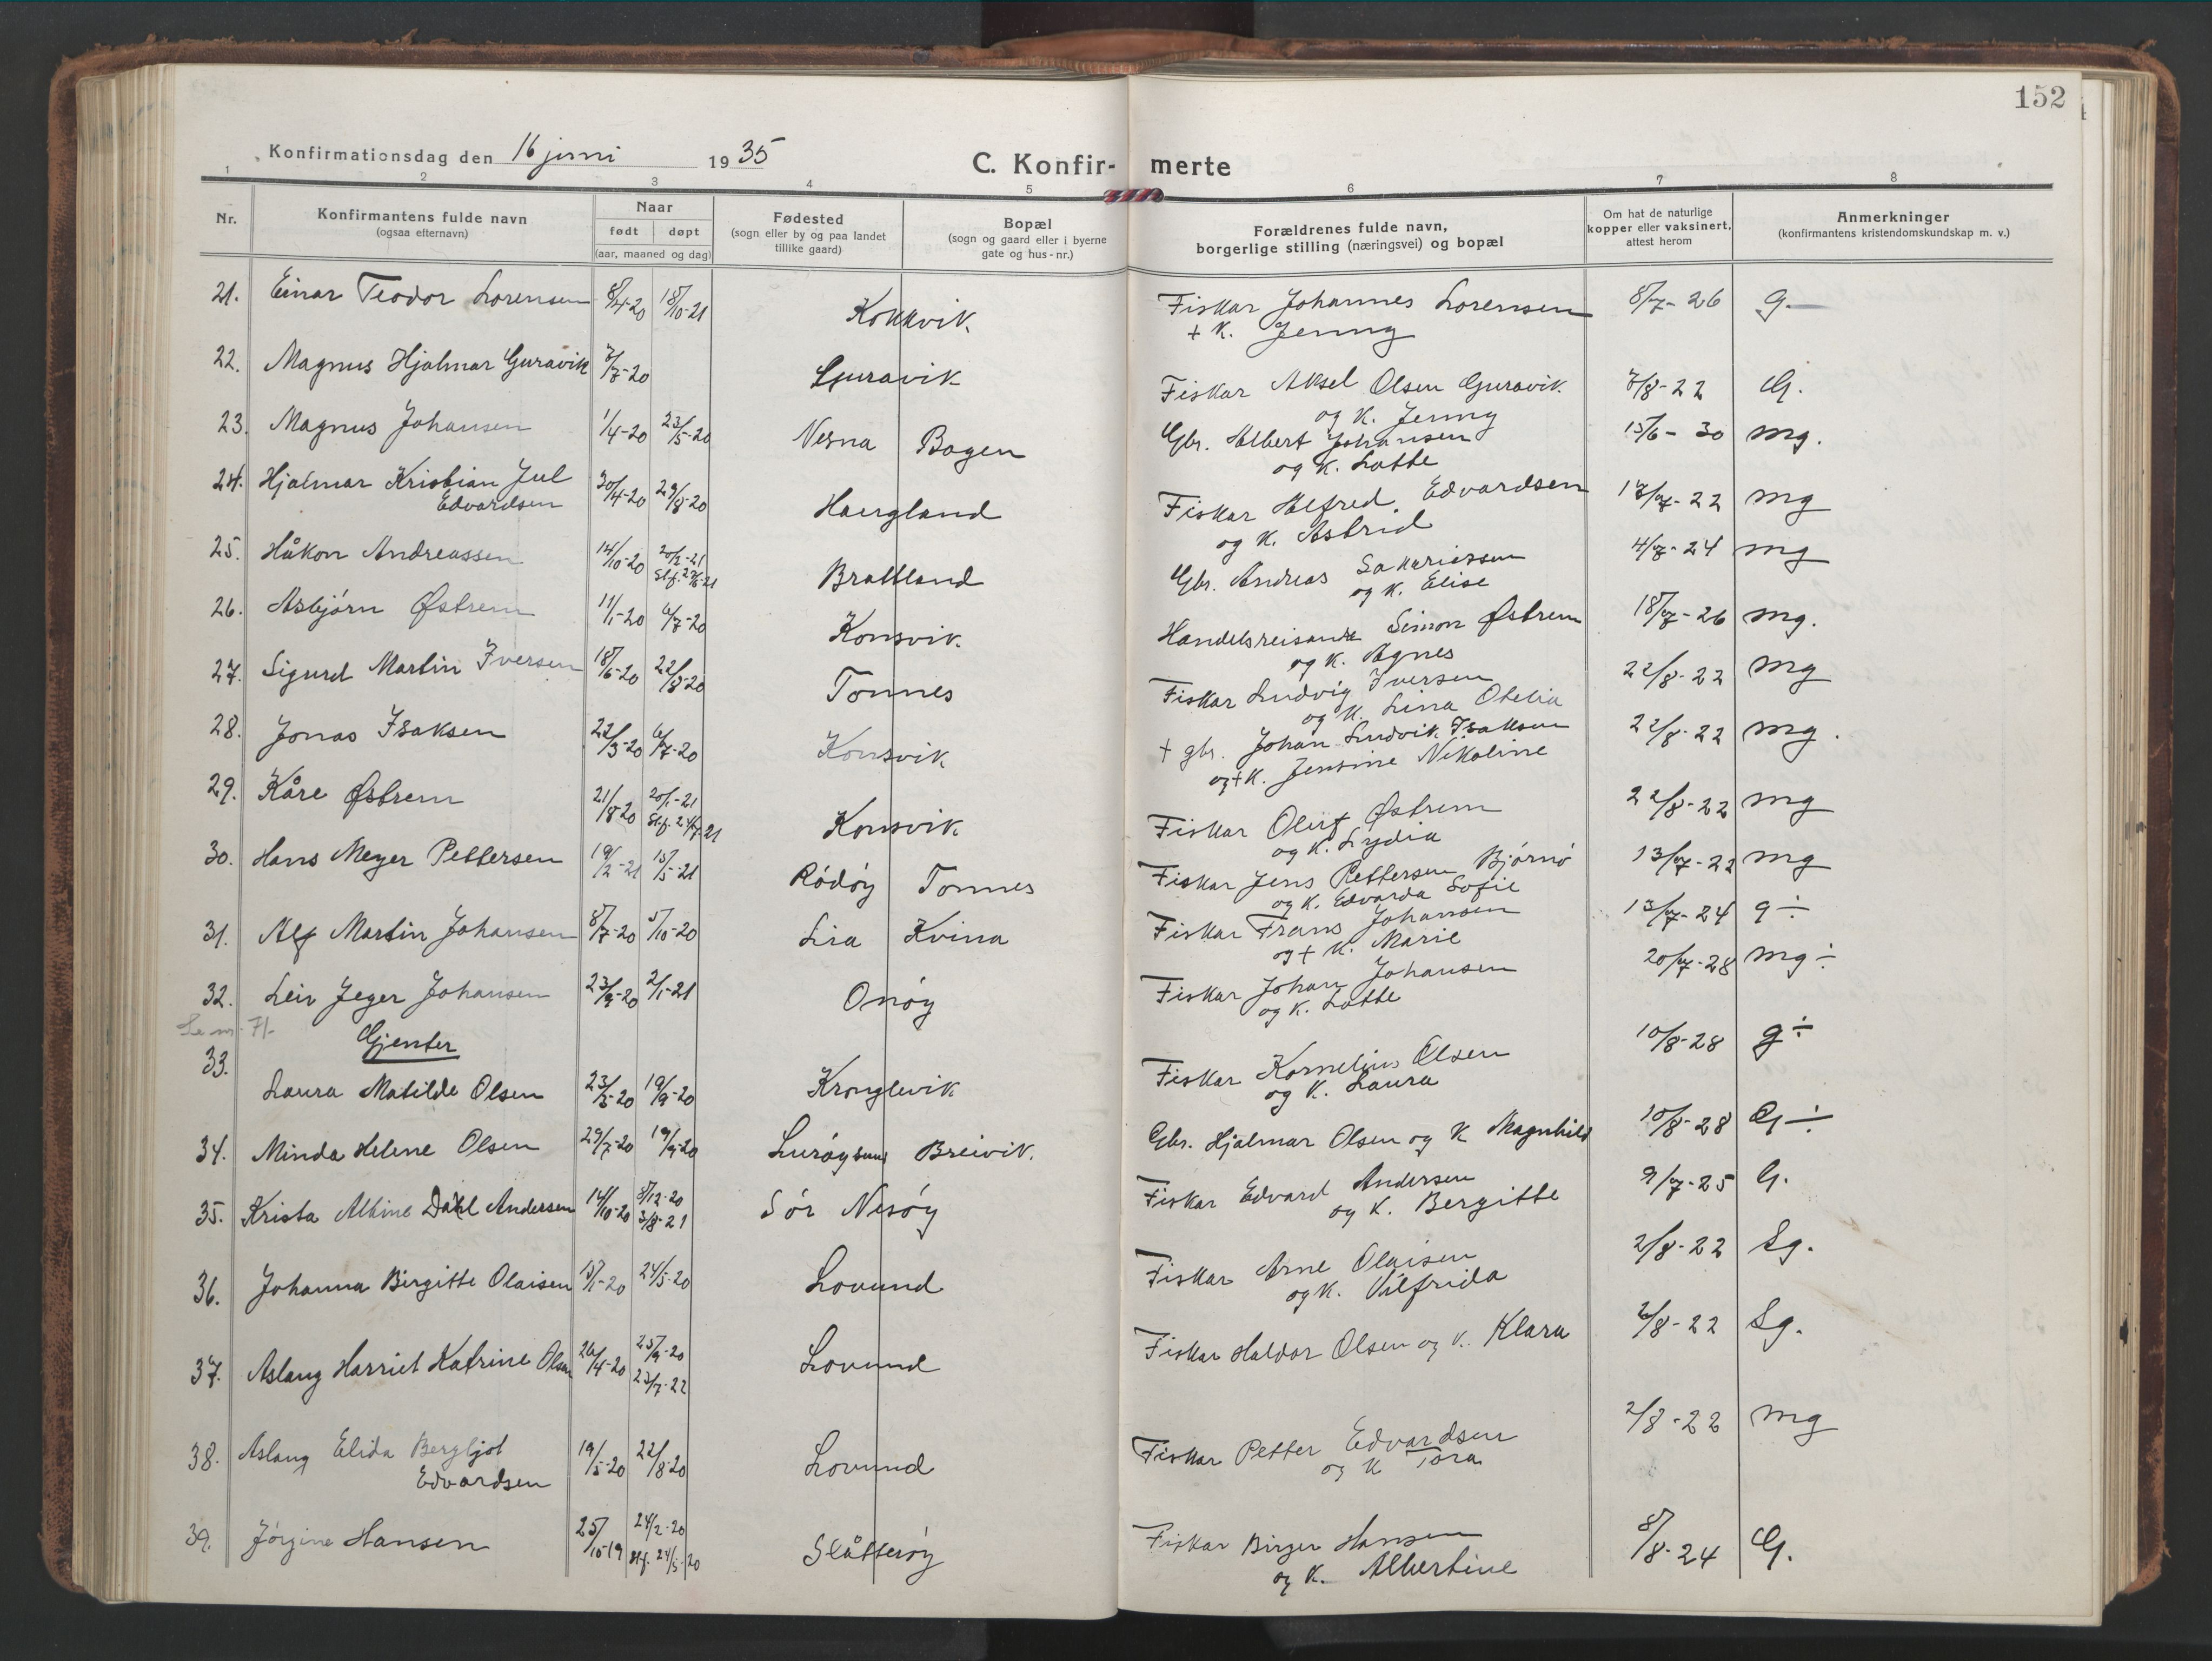 152
Konfirmationsdag den 16 juni 1935
C. Konfir- merte
1 2 3 4 5 6 7 8
Nr. Konfirmantens fulde navn (ogsaa efternavn) Naar født døpt (aar, maaned og dag) Fødested (sogn eller by og paa landet tillike gaard) Bopæl (sogn og gaard eller i byerne gate og hus-nr.) Forældrenes fulde navn, borgerlige stilling (næringsvei) og bopæl Om hat de naturlige kopper eller vaksinert, attest herom Anmerkninger (konfirmantens kristendomskundskap m. v.)
21. Einar Teodor Lorensen 8/4-20 18/10-21 Kokkvik Fiskar Johannes Lorensen 8/7-26 g.
+ K. Jenny
22. Magnus Hjalmar Guravik 7/7-20 Guravik Fiskar Aksel Olsen Guravik 7/8-22 G.
og K. Jenny
23. Magnus Johansen 1/4-20 23/5-20 Nesna Bogen Gbr. Albert Johansen 15/6-30 mg.
og K. Lotte
24. Hjalmar Kristian Jul 30/4-20 29/8-20 Haergland Fiskar Alfred Edvardsen 13/7-22 mg
Edvardsen og K. Astrid
25. Håkon Andreassen 14/10-20 20/2-21 Brattland Gbr. Andreas Sakariassen 4/7-24 mg
og K. Elise
26. Asbjörn Østrem 11/1-20 6/7-20 Konsvik. Handelsreisande Simon Østrem 18/7-26 mg.
og K. Agnes
27. Sigurd Martin Iversen 18/6-20 22/8-20 Tonnes Fiskar Ludvig Iversen 22/8-22 mg
og K. Lina Otelia
28. Jonas Isaksen 22/3-20 6/7-20 Konsvik + gbr. Johan Ludvik Isaksen 22/8-22 mg.
og + K. Jensine Nikoline
29. Kåre Østrem 21/8-20 20/1-21 Konsvik Fiskar Oluf Østrem 22/8-22 mg
St.f. 24/7-21 og K. Lydia
30. Hans Meyer Pettersen 19/2-21 15/5-21 Rödöy Tonnes Fiskar Jens Pettersen Björnö 13/7-22 mg
og K. Edvarda Sofie
31. Alf Martin Johansen 8/7-20 5/10-20 Lia Kvina Fiskar Frans Johansen 13/7-24 g÷
og + K. Marie
32. Leiv Jeger Johansen 23/9-20 2/1-21 Onöy Fiskar Johan Johansen 20/7-28 mg÷
og K. Lotte
Se nr. 71.
Gjenter
33. Laura Matilde Olsen 23/5-20 19/9-20 Kronglevik Fiskar Kornelius Olsen 10/8-28 g÷
og K. Laura
34. Minda Helene Olsen 29/7-20 19/9-20 Luröysund Breivik. Gbr. Hjalmar Olsen og K Magnhild 10/8-28 G÷
35. Krista Albine Dahl Andersen 14/10-20 8/12-20 Sör Nesöy Fiskar Edvard Andersen 9/7-25 G.
3/8-21 og K. Bergitte
36. Johanna Birgitte Olaisen 15/1-20 24/5-20 Lovund Fiskar Arne Olaisen 2/8-22 Sg.
og K. Vilfrida
37. Aslaug Harriet Katrine Olsen 26/4-20 25/9-20 Lovund Fiskar Haldor Olsen og K. Klara 2/8-22 Sg.
23/7-22
38. Aslaug Elida Bergljot 19/5-20 22/8-20 Lovund Fiskar Petter Edvardsen 2/8-22 mg
Edvardsen og K Tora
39. Jörgine Hansen 25/10-19 24/2-20 Slåtteröy Fiskar Birger Hansen 8/8-24 G.
St.f. 24/5-20 og K. Albertine